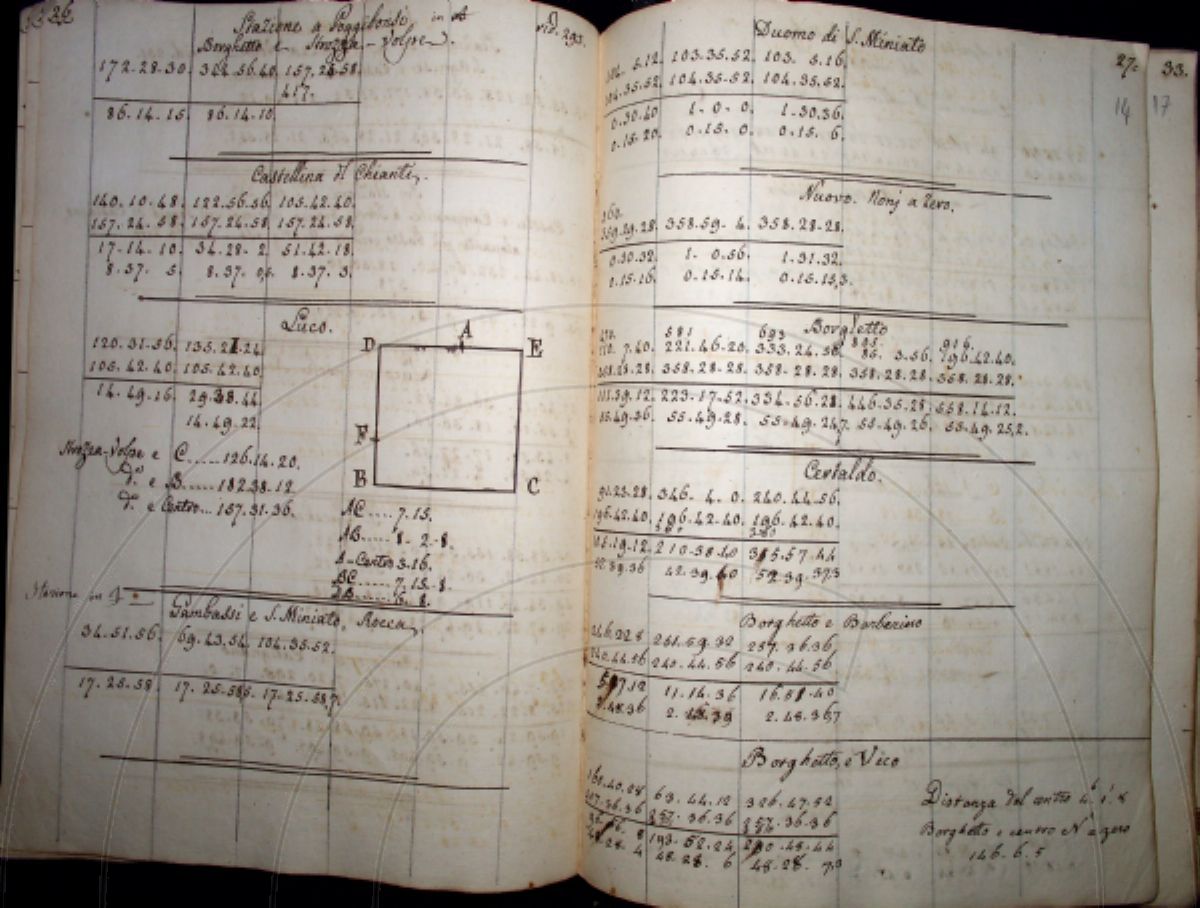 26
Stazione a Poggibonsi, in A
rid. 293.
Borghetto e Strozza-Volpe.
172.28.30. 344.56.40. 157.24.58.
417.
86.14.15. 86.14.10.
Castellina di Chianti.
140.10.48. 122.56.56. 105.42.40.
157.24.58. 157.24.58. 157.24.58.
17.14.10. 34.28. 2. 51.42.18.
8.37. 5. 8.37. 0,5. 8.37. 3.
Luco.
120.31.56. 135.21.24.
105.42.40. 105.42.40.
14.49.16. 29.38.44.
14.49.22.
D A E
F
B C
Strozza-Volpe e C......126.14.20.
d.º e B.....182.38.12
d.º e Centro...157.31.36.
AC.....7.15.
AB.....8.2.8.
A-Centro 3.16.
BC.....7.15.8.
Stazione in
Gambassi e S. Miniato, Rocca.
34.51.56. 69.43.54. 104.35.52.
17.25.58. 17.25.58,5. 17.25.58,7.
27. 33.
14 17
Duomo di S. Miniato
5.12. 103.35.52. 103. 5.16.
104.35.52. 104.35.52. 104.35.52.
0.30.40 1. 0. 0. 1.30.36.
0.15.20. 0.15. 0. 0.15. 6.
Nuovo. Nonj a Zero.
360.
359.29.28. 358.59. 4. 358.28.28.
0.30.32. 1. 0.56. 1.31.32.
0.15.16. 0.15.14. 0.15.15,3.
Borghetto
581 693 805. 916.
110. 7.40. 221.46.20. 333.24.56. 85. 3.56. 196.42.40.
358.28.28. 358.28.28. 358.28.28. 358.28.28. 358.28.28.
111.39.12. 223.17.52. 334.56.28. 446.35.28. 558.14.12.
55.49.36. 55.49.28. 55.49.24,7. 55.49.26. 55.49.25,2.
Certaldo.
91.23.28. 346. 4. 0. 240.44.56.
196.42.40. 196.42.40. 196.42.40.
105.19.12. 210.38.40 315.57.44
52.39.36 42.39.40 52.39.37,3
Borghetto e Barberino
246.22.8 251.59.32 257.36.36
240.44.56 240.44.56 240.44.56
5.37.12 11.14.36 16.51.40
2.48.36 2.48.39 2.48.36,7
Borghetto, e Vico
160.40.28 63.44.12 326.47.52
257.36.36 257.36.36 257.36.36
193.52.24 290.48.44
48.28. 4 48.28. 6 48.28. 7,3
Distanza dal centro
Borghetto e centro N a zero
146.6.5